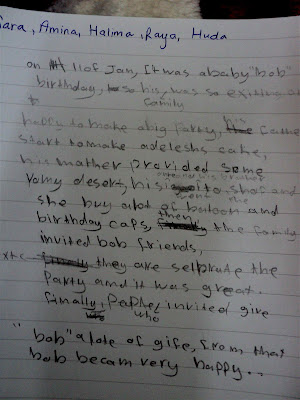 Sara, Amina, Halima, Raya, Huda
on 11 of Jan, It was a baby "bob"
birthday, so his family was so exiting and
happy to make a big party, his father
start to make adeleshs cake,
his mather provided some
Yamy desert, his went shop and the
she buy alot of baloon and
birthday caps, then the family
invited bob friends,
they are selprate the
Party and it was great.
finally, People who invited give
"bob" a lote of gife, from that
bob becam very happy..